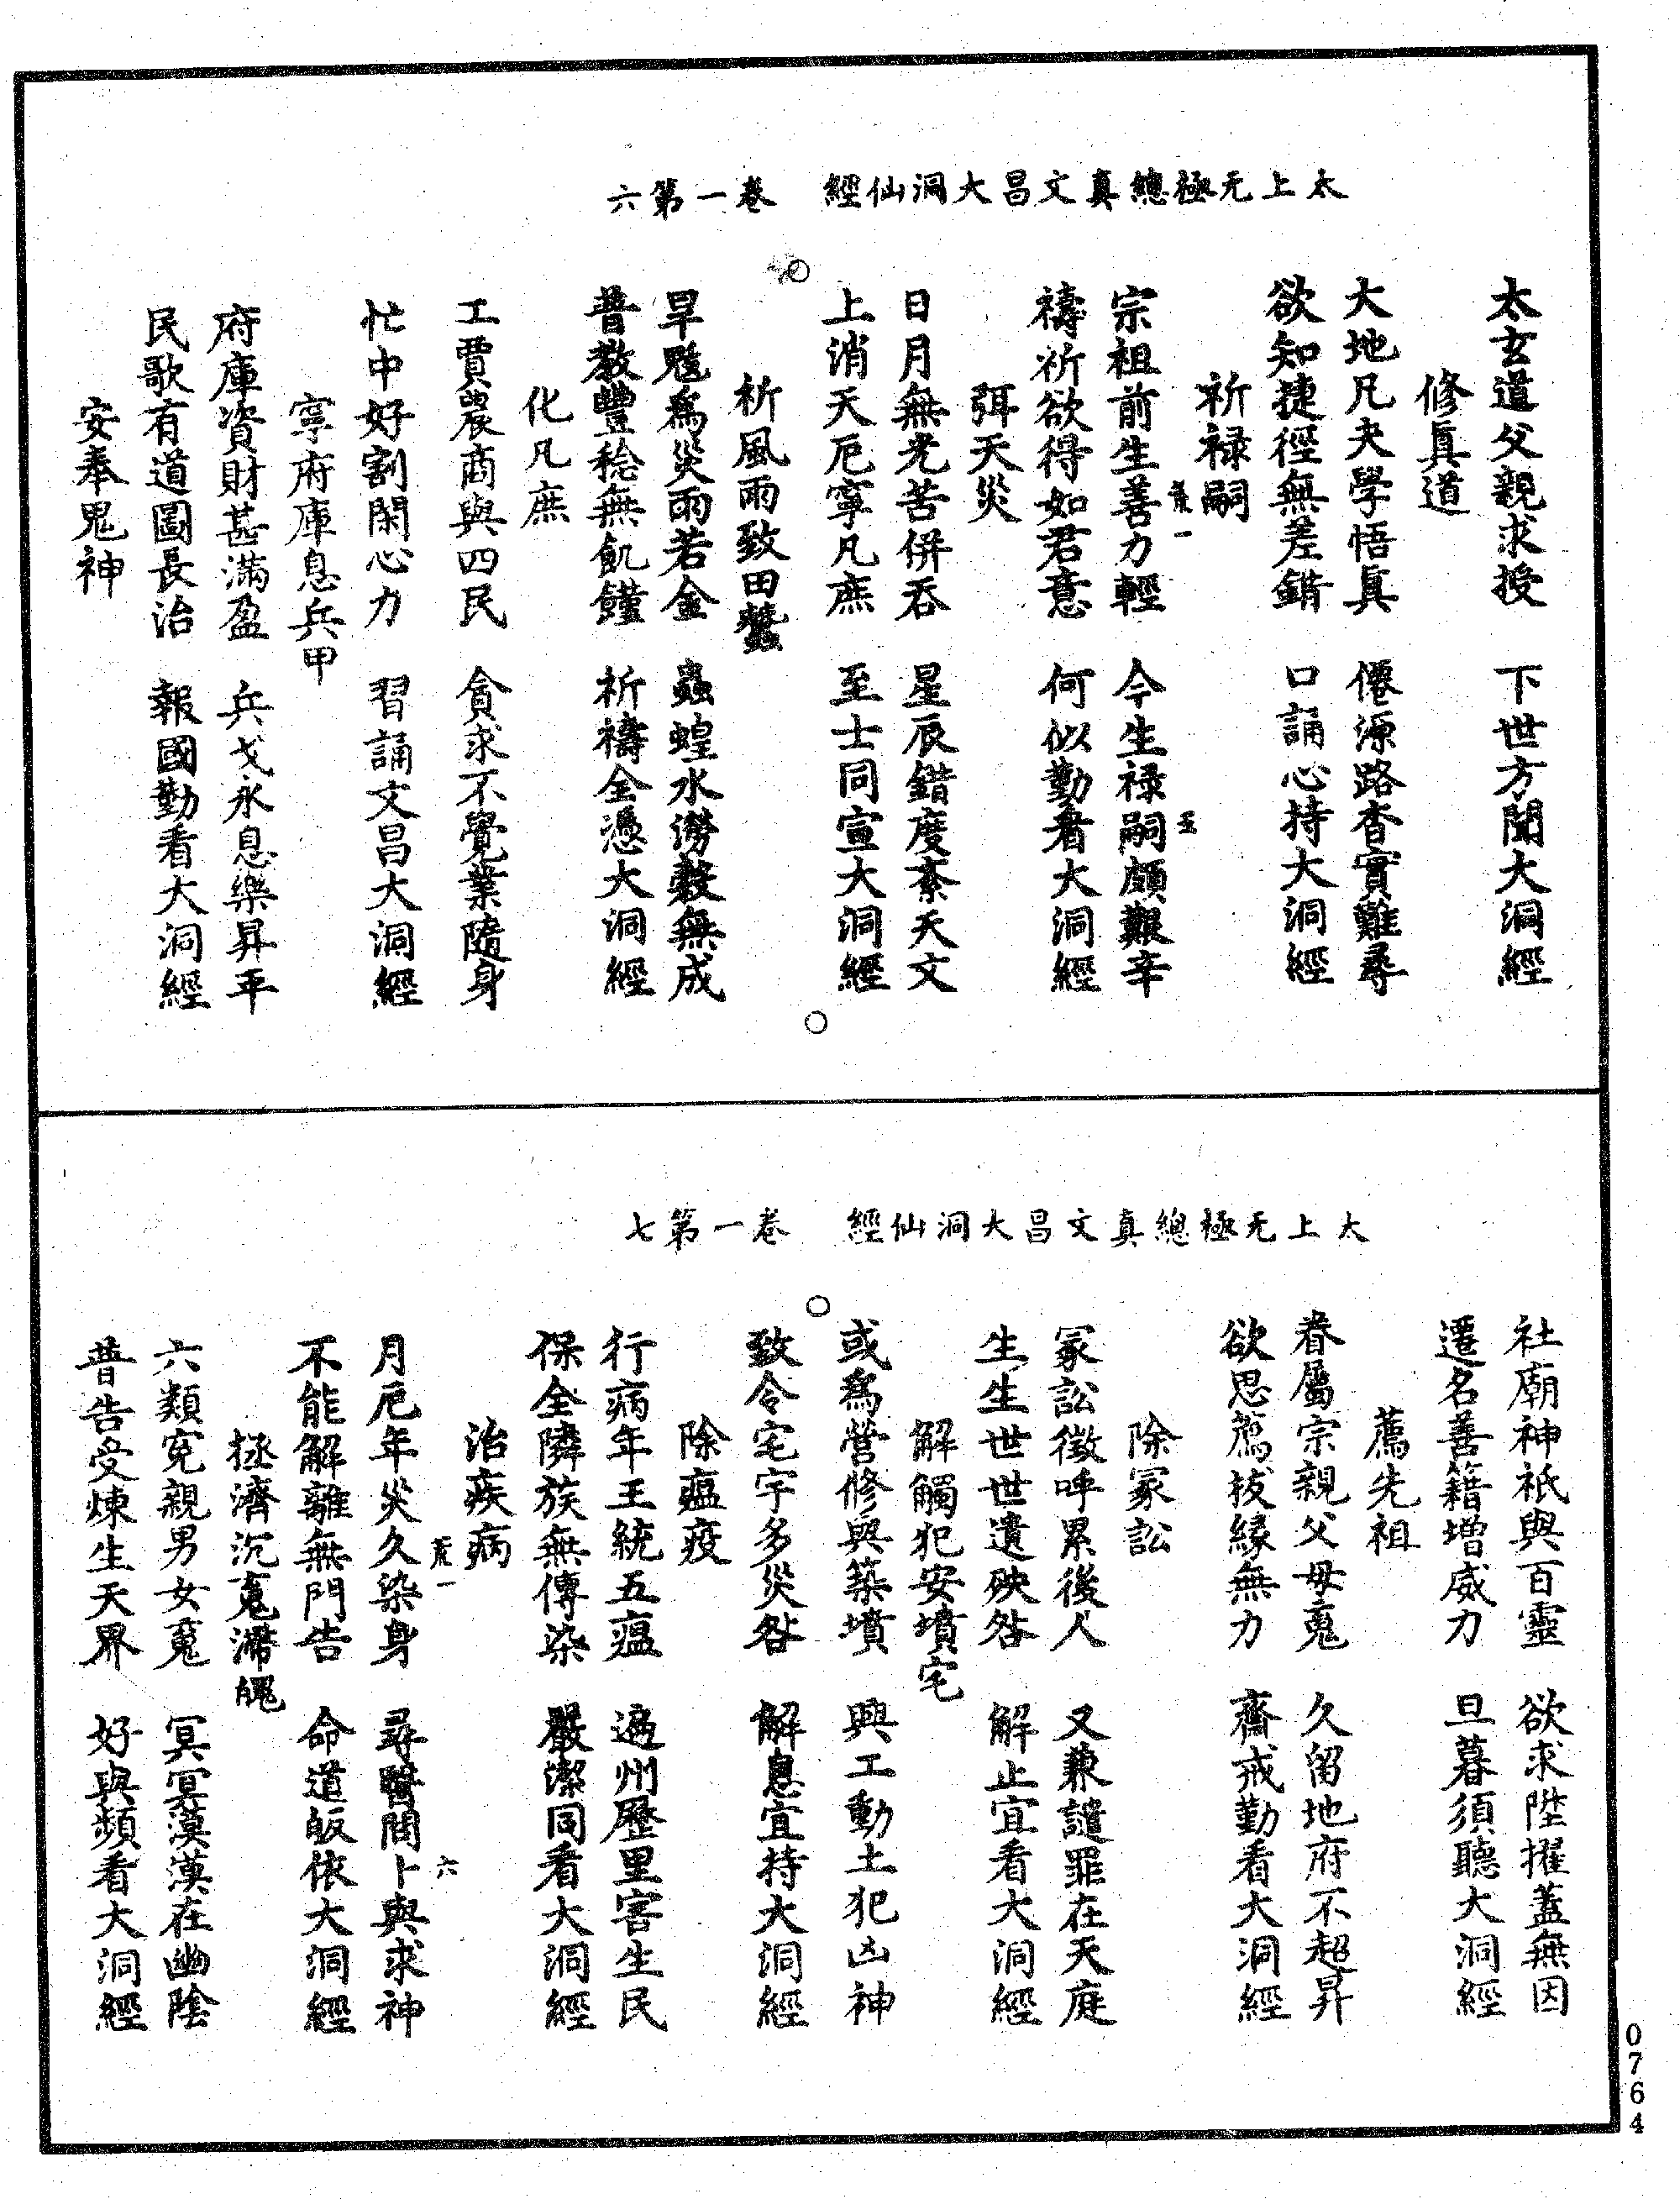 太上无極總真文昌大洞仙經　卷一第六
太玄道父親求授　下世方聞大洞經
修真道
大地凡夫學悟真　僊源路杳實難尋
欲知捷徑無差錯　口誦心持大洞經
祈禄嗣
荒一
五
宗祖前生善力輕　今生禄嗣頗艱辛
禱祈欲得如君意　何似勤看大洞經
弭天災
日月無光苦併吞　星辰錯度紊天文
上消天厄寧凡庶　至士同宣大洞經
祈風雨致田蠶
旱魃為災雨若金　蟲蝗水澇穀無成
普教豐稔無飢饉　祈禱全憑大洞經
化凡庶
工賈農商與四民　貪求不覺業隨身
忙中好割閑心力　習誦文昌大洞經
寧府庫息兵甲
府庫資財甚滿盈　兵戈永息樂昇平
民歌有道國長治　報國勤看大洞經
安奉鬼神
太上无極總真文昌大洞仙經　卷一第七
社廟神祇與百靈　欲求陞擢蓋無因
遷名善籍增威力　旦暮須聽大洞經
薦先祖
眷屬宗親父母䰟　久留地府不超昇
欲思薦拔緣無力　齋戒勤看大洞經
除冢訟
冢訟徵呼累後人　又兼譴罪在天庭
生生世世遺殃咎　解止宜看大洞經
解觸犯安墳宅
或為營修與築墳　興工動土犯凶神
致令宅宇多災咎　解息宜持大洞經
除瘟疫
行病年王統五瘟　遍州歷里害生民
保全隣族無傳染　嚴潔同看大洞經
治疾病
荒一
六
月厄年災久染身　尋醫問卜與求神
不能解離無門告　命道皈依大洞經
拯濟沉䰟滯魄
六類寃親男女䰟　冥冥漠漠在幽陰
普告受煉生天界　好與頻看大洞經
0764